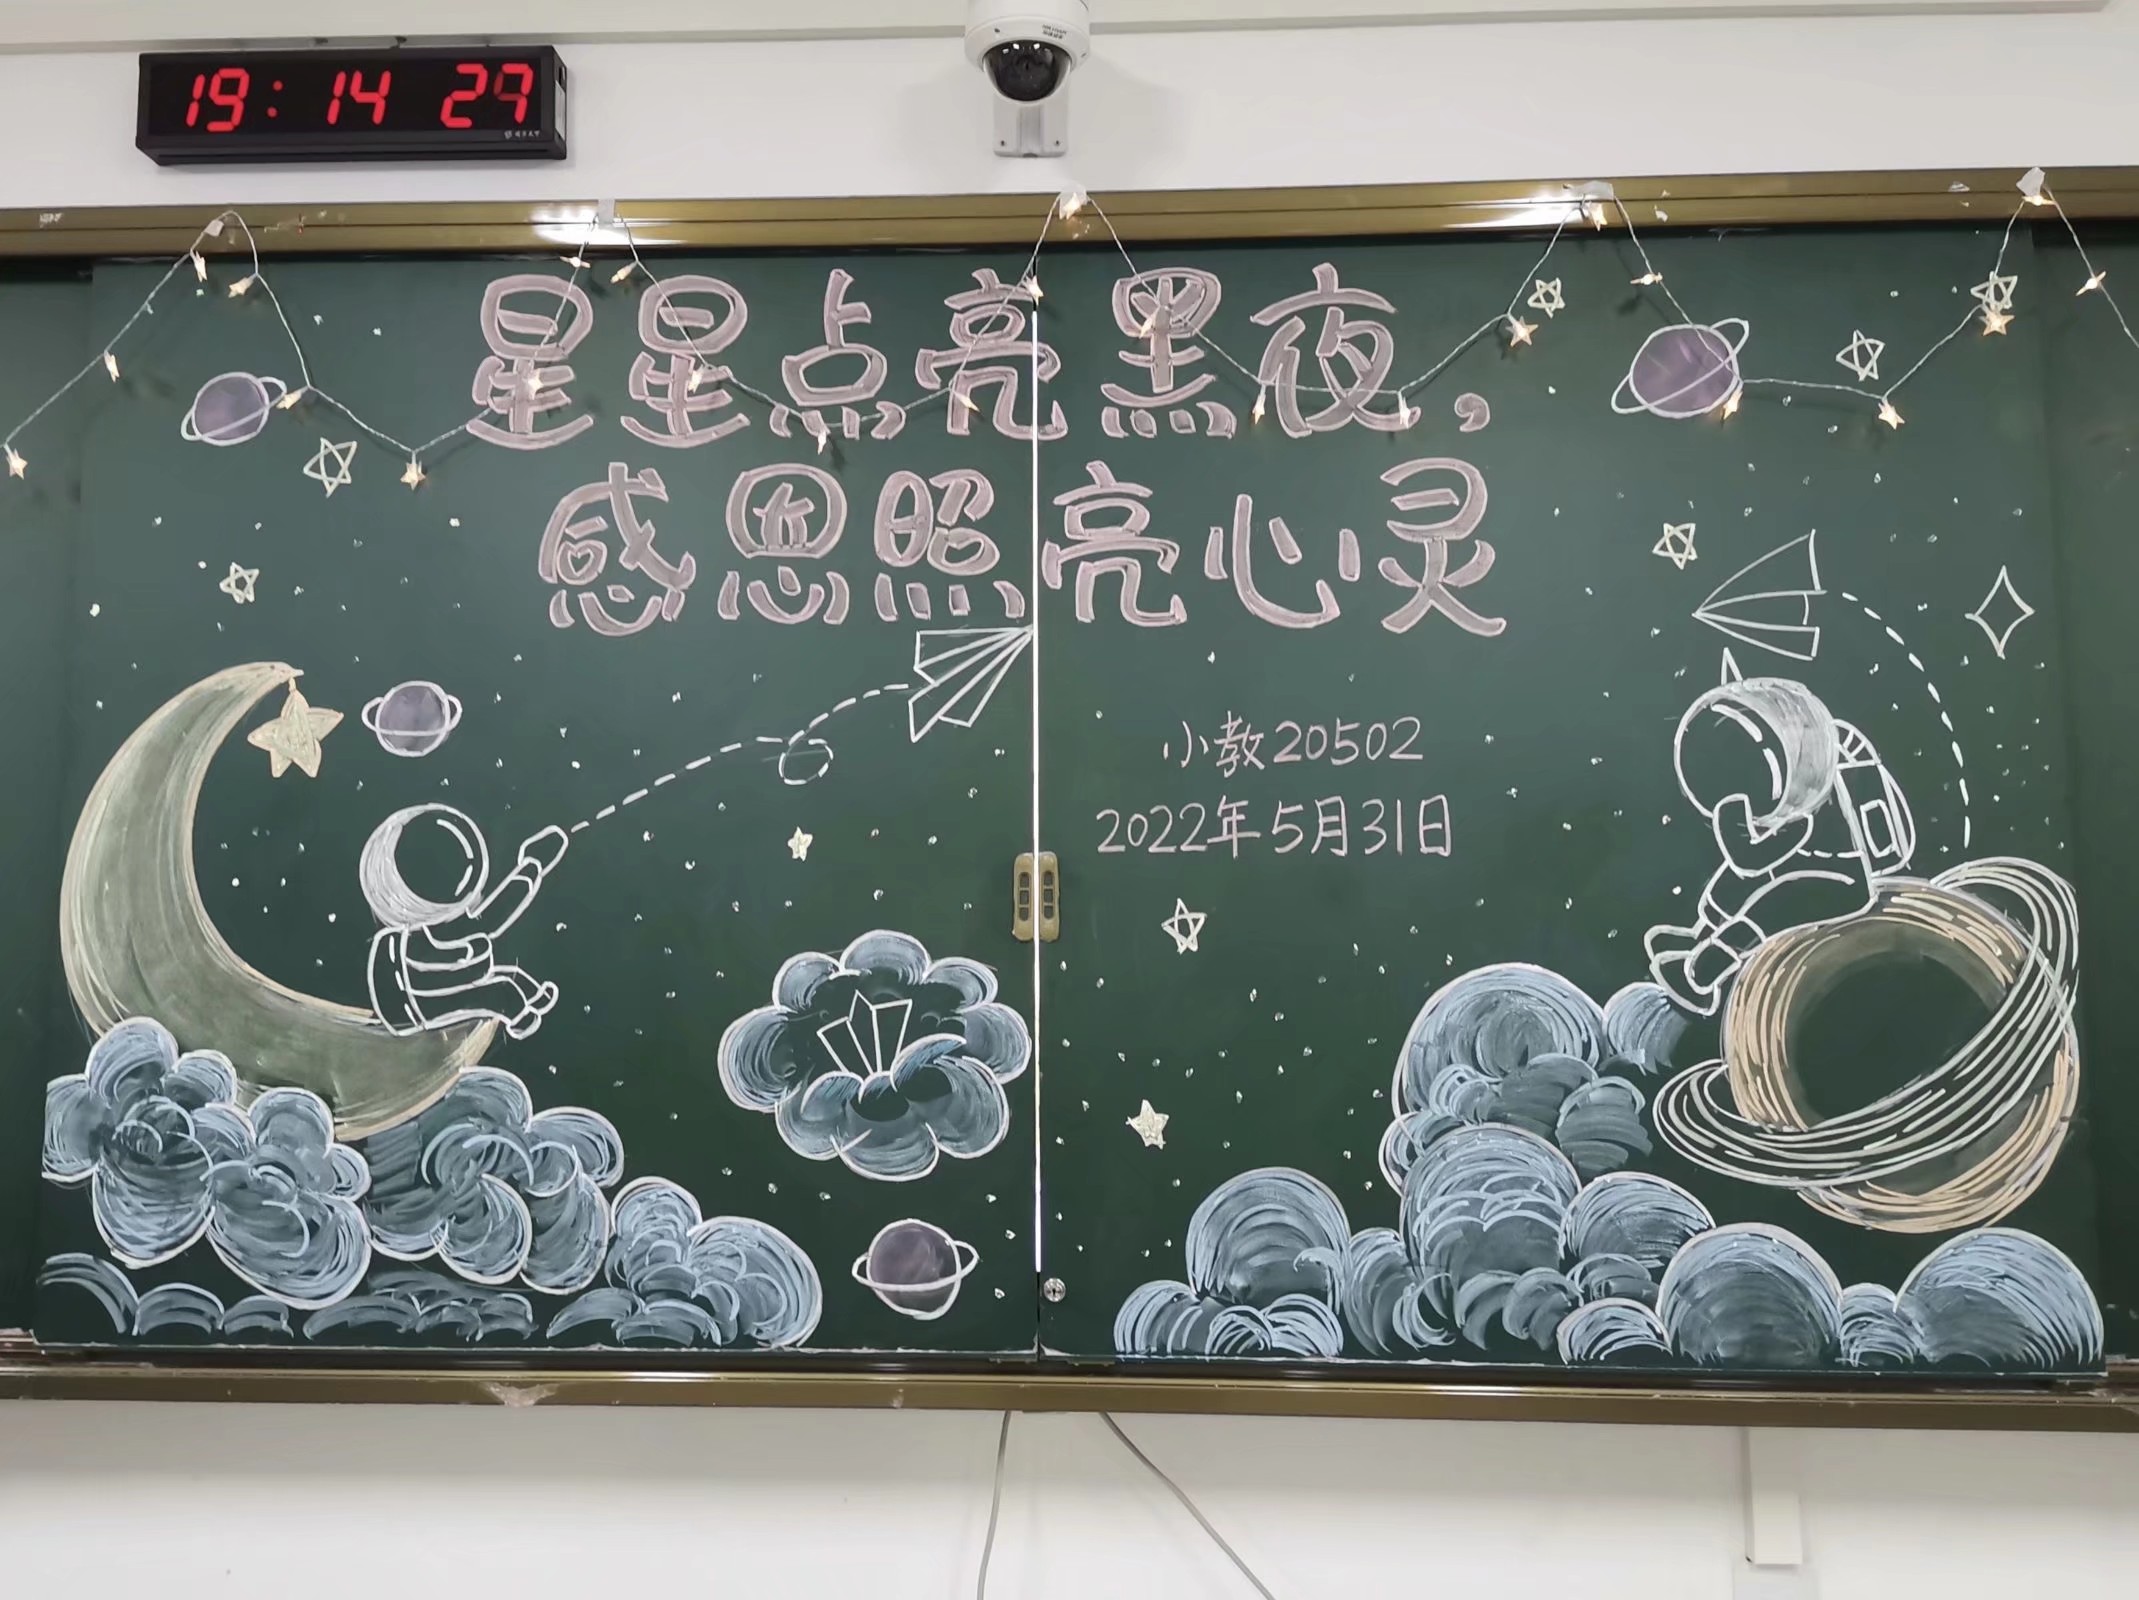 19:14 27
星星点亮黑夜,
感恩照亮心灵
小教20502
2022年5月31日